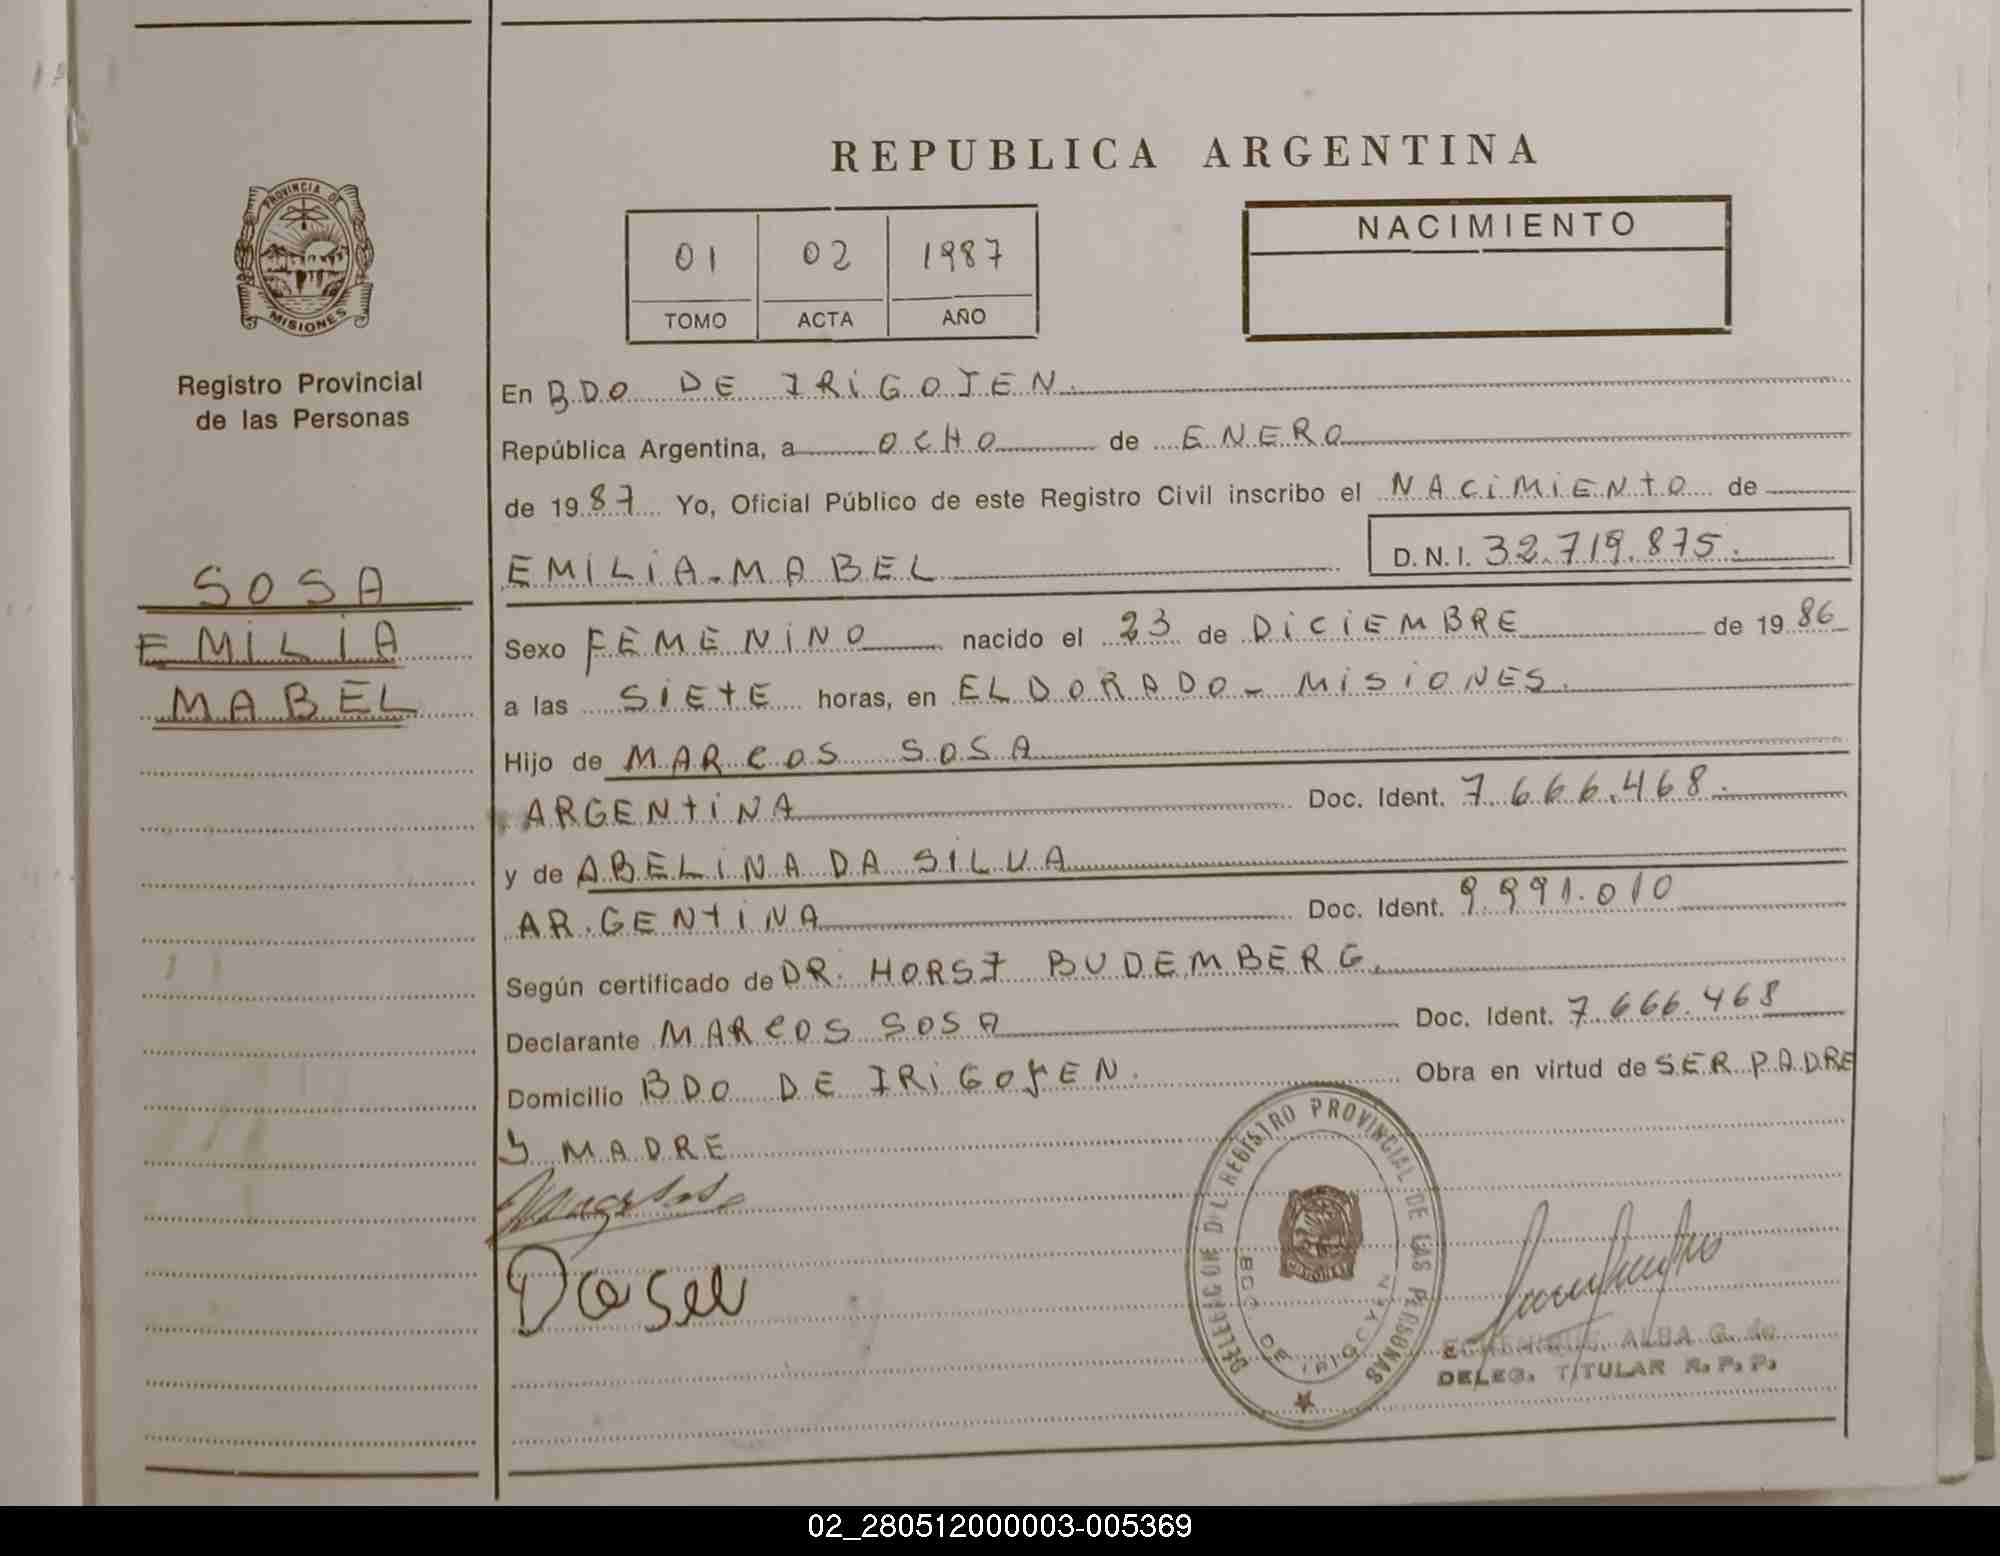 REPUBLICA ARGENTINA
PROVINCIA DE
MISIONES
Registro Provincial
de las Personas
SOSA
EMILIA
MABEL
01 02 1987
TOMO ACTA AÑO
NACIMIENTO
En BDO DE IRIGOJEN.
República Argentina, a OCHO de ENERO
de 1987 Yo, Oficial Público de este Registro Civil inscribo el NACIMIENTO de
EMILIA-MABEL D.N.I. 32.719.875.
Sexo FEMENINO nacido el 23 de DICIEMBRE de 1986
a las SIETE horas, en ELDORADO - MISIONES.
Hijo de MARCOS SOSA
ARGENTINA Doc. Ident. 7.666.468.
y de ABELINA DA SILVA
AR.GENTINA Doc. Ident. 9.991.010
Según certificado de DR. HORST BUDEMBERG.
Declarante MARCOS SOSA Doc. Ident. 7.666.468
Domicilio BDO DE IRIGOYEN. Obra en virtud de SER PADRE
Y MADRE
DELEGACION DEL REGISTRO PROVINCIAL DE LAS PERSONAS
BDO. DE IRIGOYEN
MISIONES
ALBA G. de
DELEG. TITULAR R.P.P.
02_280512000003-005369